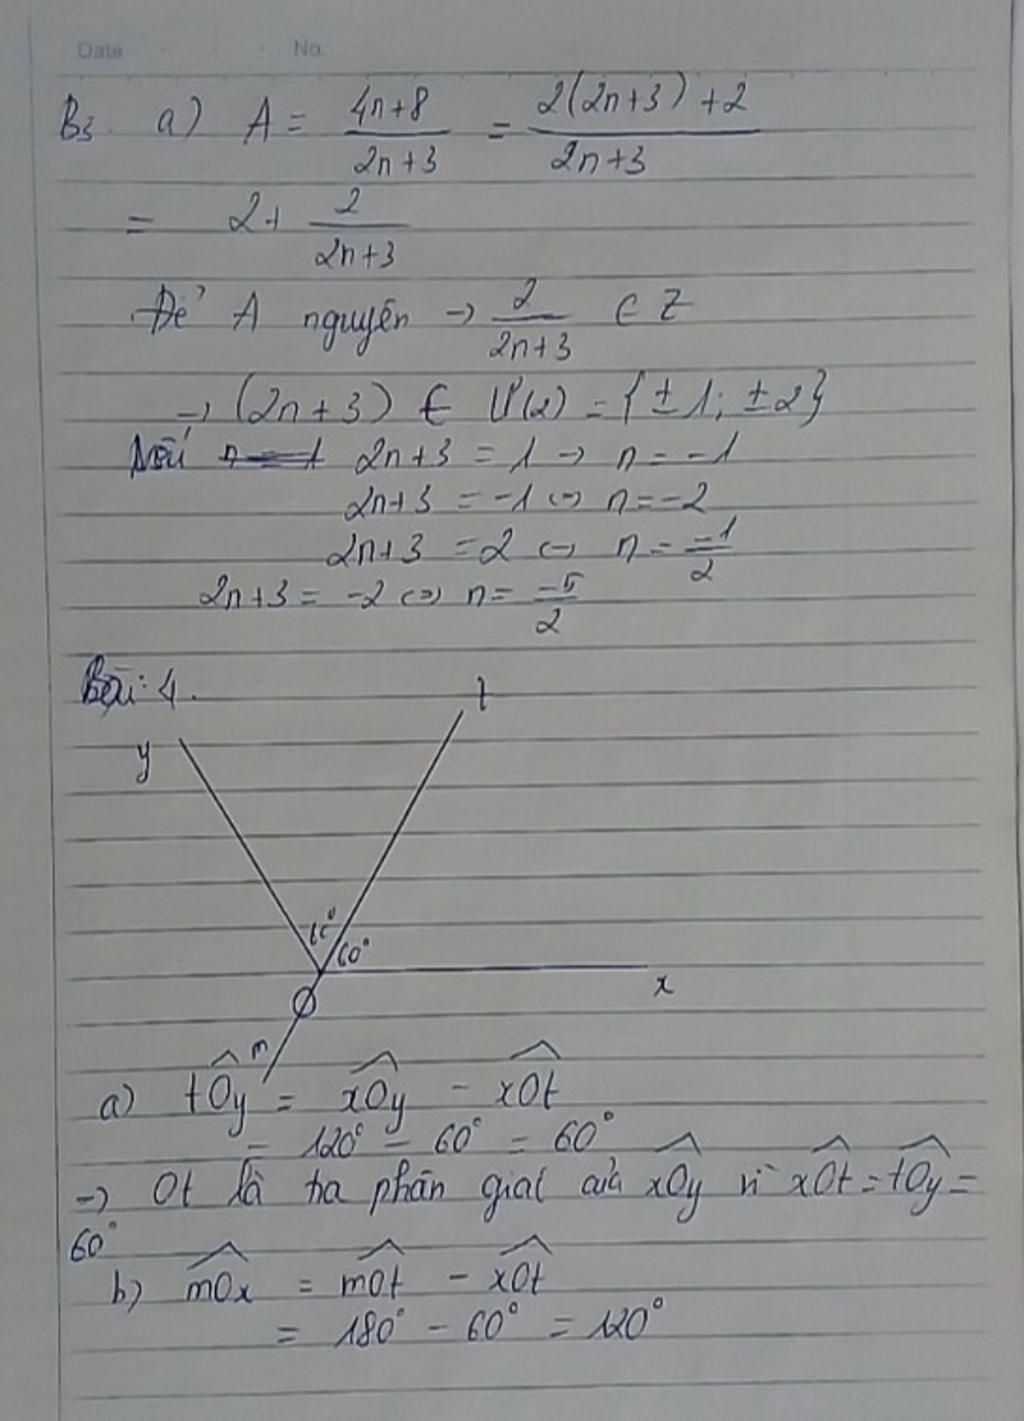 Date No.
B3. a) A = (4n+8)/(2n+3) = (2(2n+3)+2)/(2n+3)
= 2+ 2/(2n+3)
Để A nguyên → 2/(2n+3) ∈ Z
→ (2n+3) ∈ Ư(2) = {±1; ±2}
Nếu 2n+3 = 1 → n = -1
2n+3 = -1 ⇔ n = -2
2n+3 = 2 ⇔ n = -1/2
2n+3 = -2 ⇔ n = -5/2
Bài: 4.
t
y
60°
60°
x
O
m
a) tOy = xOy - xOt
= 120° - 60° = 60°
→ Ot là tia phân giác của xOy vì xOt = tOy =
60°
b) mOx = mOt - xOt
= 180° - 60° = 120°